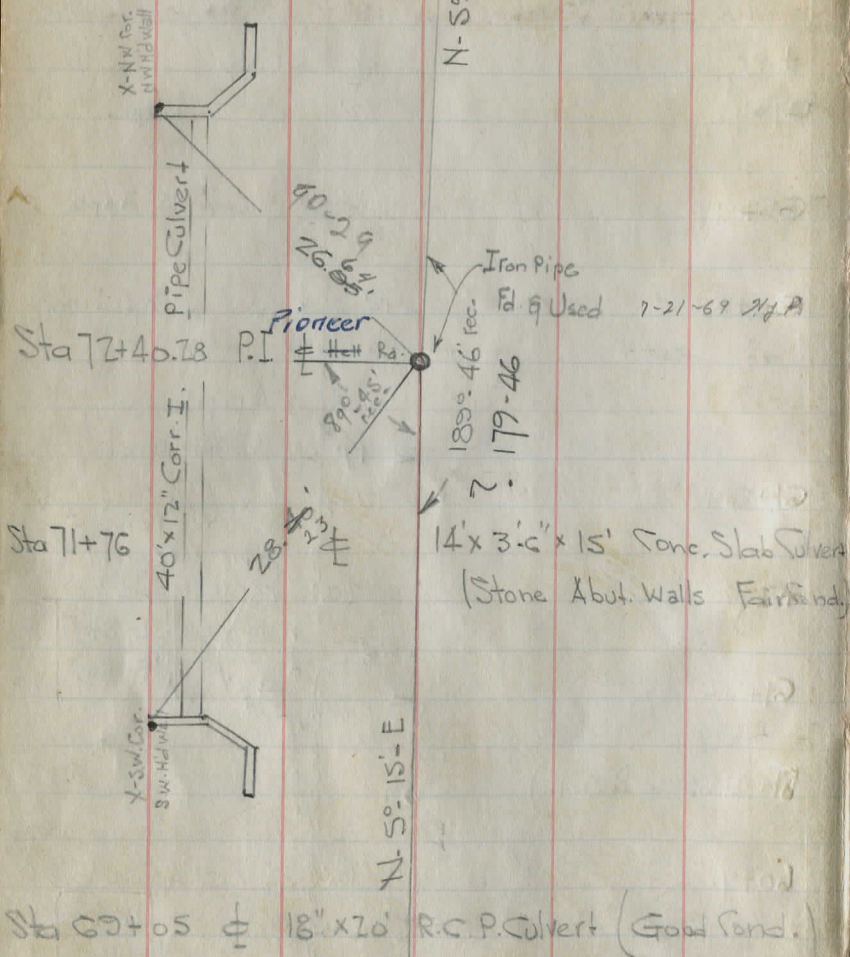 X-NW Cor.
NW Hdwall
N-5°
Pipe Culvert
90-29
26.65'
64
Iron Pipe
Fd & Used 7-21-69
Pioneer
Sta 72+40.28 P.I ℄ Hell Rd.
89°-45' rec.
180°-46' rec.
? 179-46
40'x12" Corr. I.
Sta 71+76
28.
23
℄ 14'x 3'-6" x 15' Conc. Slab Culvert
(Stone Abut. Walls Fair Cond.)
X-S.W. Cor.
S.W. Hdwall
N-5°-15'-E
Sta 69+05 ℄ 18" x 20' R.C.P. Culvert (Good Cond.)